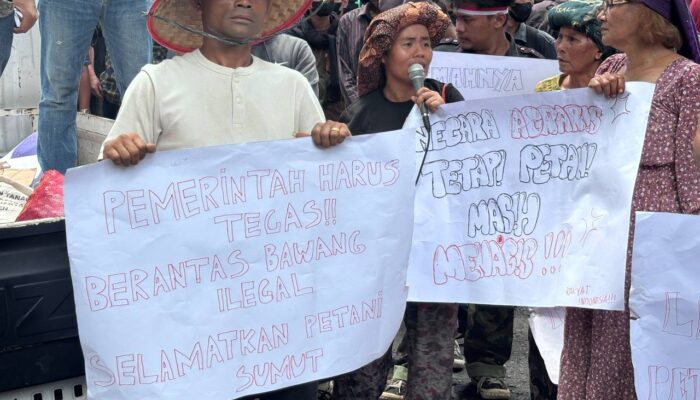 MAHNYA
PEMERINTAH HARUS
TEGAS!!
BERANTAS BAWANG
ILEGAL
SELAMATKAN PETANI
SUMUT
NEGARA AGRARIS
TETAPI PETANI!
MASIH
MENANGIS!!!
RAKYAT
INDONESIA!!!